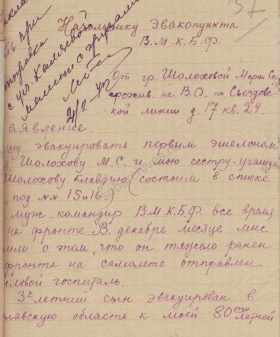 37
Начальнику Эвакопункта
В.М.К.Б.Ф.
От гр. Шолоховой Марии Се
прожив. на В.О. по Съездов
кой линии д. 17 кв. 24
аявление.
шу эвакуировать первым эшелоном
Шолохову М.С. и мою сестру-учащую
Шолохову Клавдию, состоим в списке
под №№ 15 и 16.
муж, командир В.М.К.Б.Ф. все время
на фронте. В декабре месяце мне
или о том, что он тяжело ранен
фронта на самолете отправлен
ловой госпиталь.
3х летний сын эвакуирован в
лавскую область к моей 80ти летней